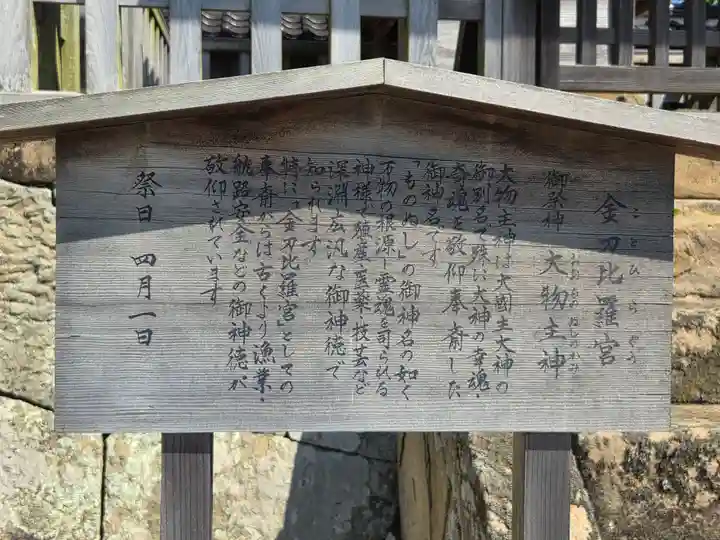 金刀比羅宮
ことひらぐう
御祭神 大物主神
おおものぬしのかみ
大物主神は大國主大神の
御別名で殊に大神の幸魂・
奇魂を敬仰奉斎した
御神名です
「ものぬし」の御神名の如く
万物の根源―霊魂を司られる
神様で殖産・医薬・技芸など
深淵広汎な御神徳で
知られます
特に「金刀比羅宮」としての
奉斎からは古くより漁業・
航路安全などの御神徳が
敬仰されています
祭日 四月一日